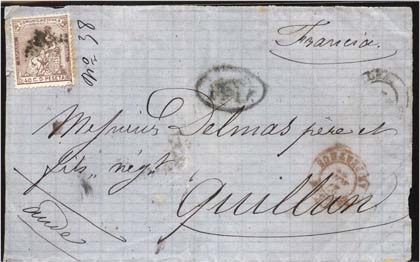 40 C. D PESETA
Nº 38
Francia
Messieurs Delmas père et
fils, négts
Quillan
Aude